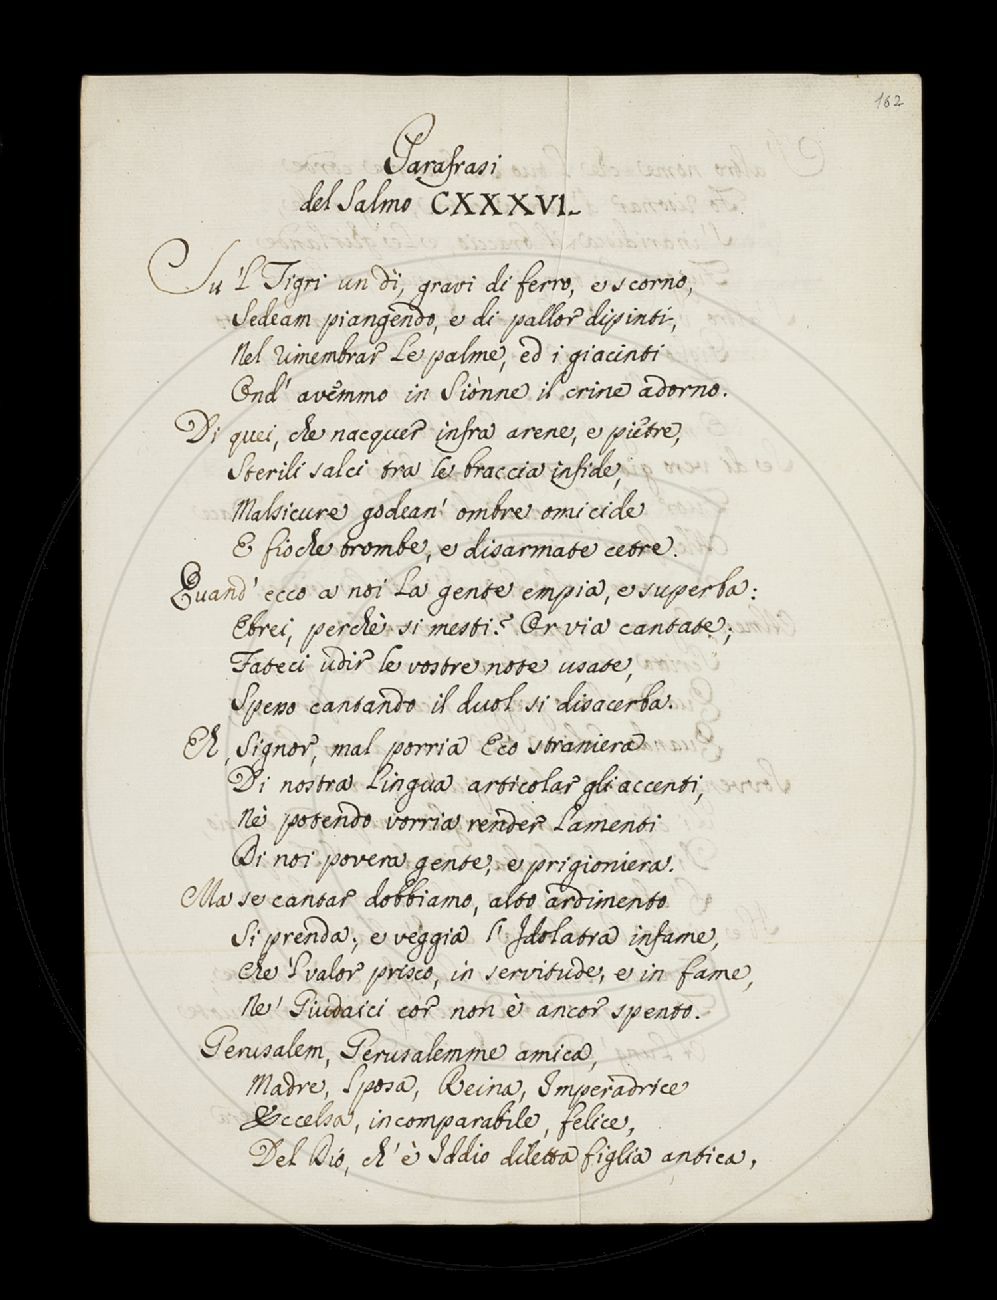 162
Parafrasi
del Salmo CXXXVI.
Su 'l Tigri un dì, gravi di ferro, e scorno,
Sedeam piangendo, e di pallor dipinti,
Nel rimembrar le palme, ed i giacinti
Ond' avemmo in Siònne il crine adorno.
Di quei, che nacquer infra arene, e pietre,
Sterili salci tra le braccia infide,
Malsicure godean' ombre omicide
E fioche trombe, e disarmate cetre.
Quand' ecco a noi la gente empia, e superba:
Ebrei, perchè si mesti? Or via cantate;
Fateci udir le vostre note usate,
Spesso cantando il duol si disacerba.
Eh, Signor, mal porria Eco straniera
Di nostra lingua articolar gli accenti,
Nè potendo vorria render lamenti
Di noi povera gente, e prigioniera.
Ma se cantar dobbiamo, alto ardimento
Si prenda, e veggia l' Idolatra infame,
Che 'l valor prisco, in servitude, e in fame,
Ne' Giudaici cor non è ancor spento.
Gerusalem, Gerusalemme amica,
Madre, Sposa, Reina, Imperadrice
Eccelsa, incomparabile, felice,
Del Dio, ch' è Iddio diletta figlia antica,